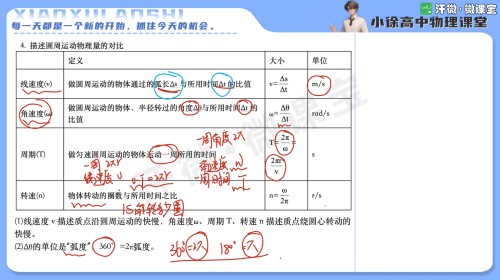 XIAOXU LAOSHI
每一天都是一个新的开始，抓住今天的机会。
汗微·微课堂
小徐高中物理课堂
4. 描述圆周运动物理量的对比
定义 大小 单位
线速度(v) 做圆周运动的物体通过的弧长Δs与所用时间Δt的比值 v=Δs/Δt m/s
角速度(ω) 做圆周运动的物体，半径转过的角度Δθ与所用时间Δt的
比值 ω=Δθ/Δt rad/s
一周角度2π
周期(T) 做匀速圆周运动的物体运动一周所用的时间 T=2π/ω=2πr/v s
一周 2πr 角速度 ω
线速度 v 一周时间 T
v T=2πr
转速(n) 物体转动的圈数与所用时间之比 n=ω/2π r/s
1S的转的圈
(1)线速度 v 描述质点沿圆周运动的快慢，角速度ω、周期 T、转速 n 描述质点绕圆心转动的
快慢。
(2)Δθ的单位是"弧度" 360°=2π弧度。
360°=2π 180°=π